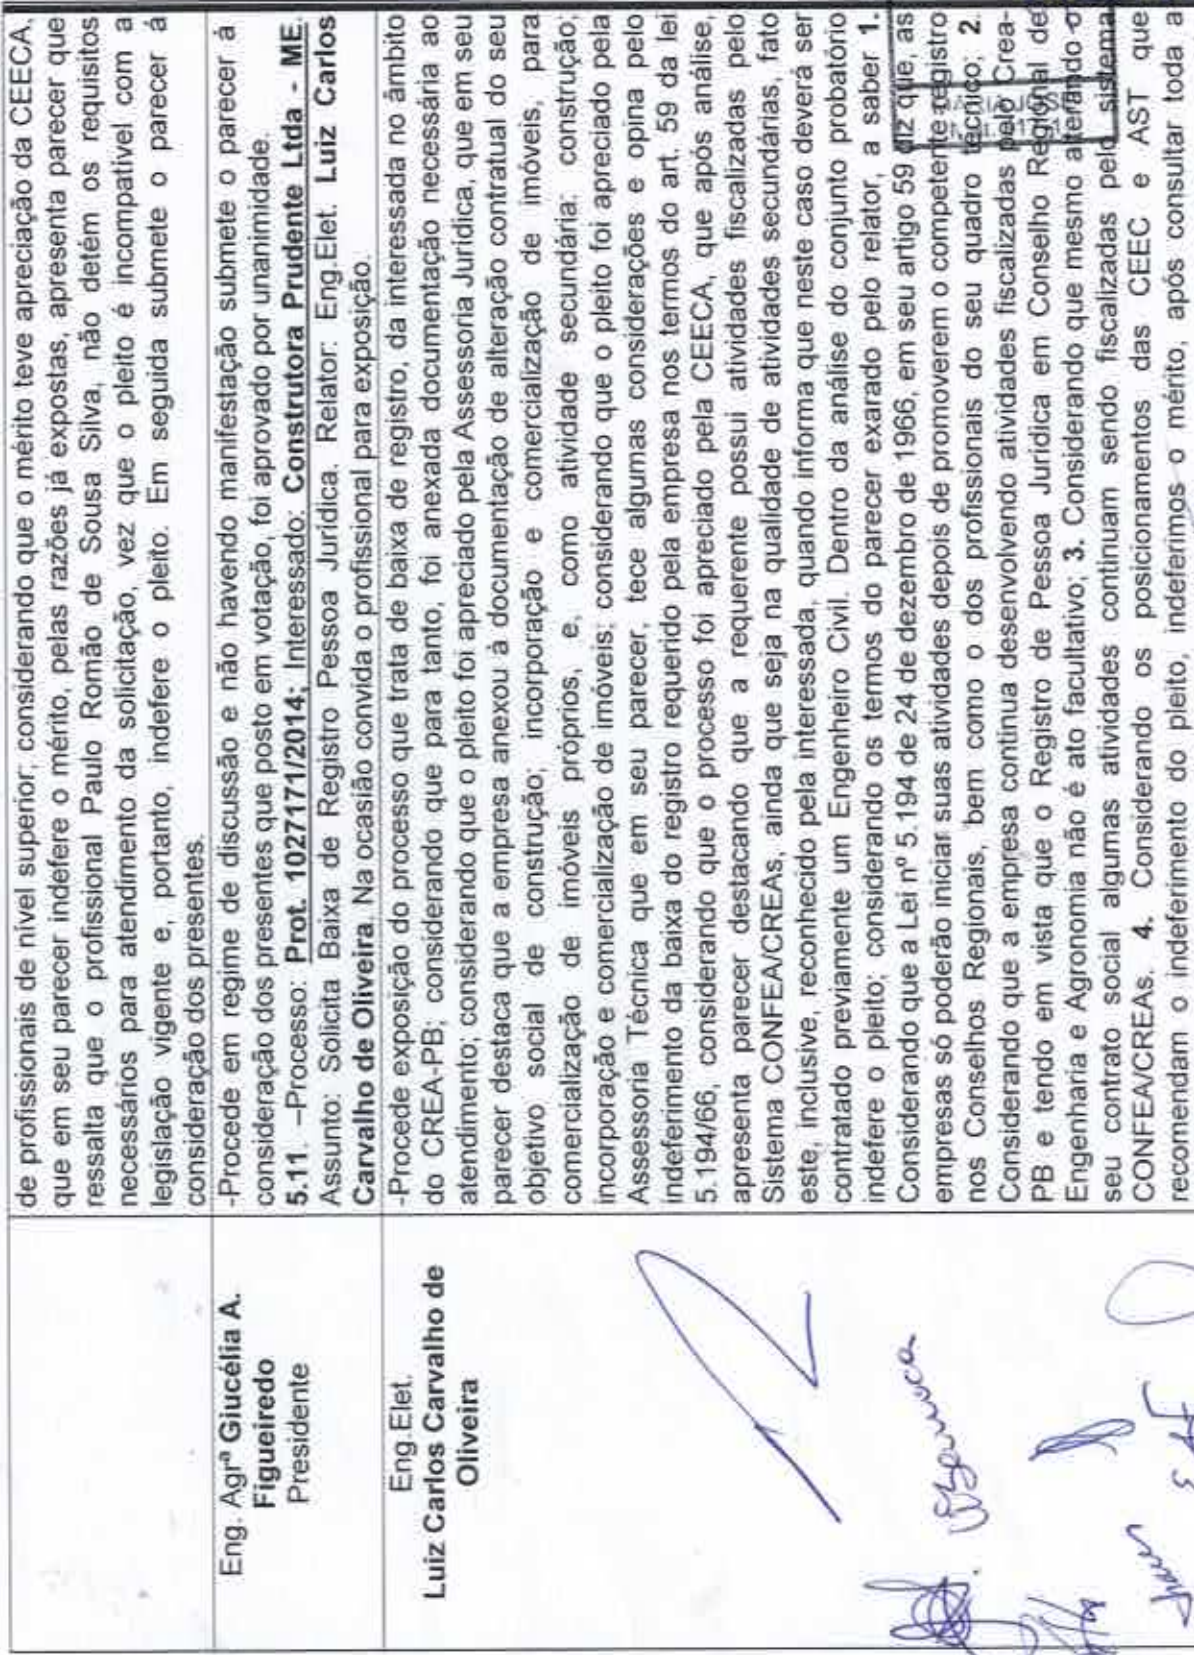 de profissionais de nível superior; considerando que o mérito teve apreciação da CEECA,
que em seu parecer indefere o mérito, pelas razões já expostas, apresenta parecer que
ressalta que o profissional Paulo Romão de Sousa Silva, não detém os requisitos
necessários para atendimento da solicitação, vez que o pleito é incompatível com a
legislação vigente e, portanto, indefere o pleito. Em seguida submete o parecer á
consideração dos presentes.
Eng. Agrª Giucélia A.
Figueiredo
Presidente
-Procede em regime de discussão e não havendo manifestação submete o parecer à
consideração dos presentes que posto em votação, foi aprovado por unanimidade.
5.11. –Processo: Prot. 1027171/2014; Interessado: Construtora Prudente Ltda - ME.
Assunto: Solicita Baixa de Registro Pessoa Jurídica. Relator: Eng.Elet. Luiz Carlos
Carvalho de Oliveira. Na ocasião convida o profissional para exposição.
Eng.Elet.
Luiz Carlos Carvalho de
Oliveira
-Procede exposição do processo que trata de baixa de registro, da interessada no âmbito
do CREA-PB; considerando que para tanto, foi anexada documentação necessária ao
atendimento; considerando que o pleito foi apreciado pela Assessoria Jurídica, que em seu
parecer destaca que a empresa anexou à documentação de alteração contratual do seu
objetivo social de construção; incorporação e comercialização de imóveis, para
comercialização de imóveis próprios, e, como atividade secundária: construção;
incorporação e comercialização de imóveis; considerando que o pleito foi apreciado pela
Assessoria Técnica que em seu parecer, tece algumas considerações e opina pelo
indeferimento da baixa do registro requerido pela empresa nos termos do art. 59 da lei
5.194/66, considerando que o processo foi apreciado pela CEECA, que após análise,
apresenta parecer destacando que a requerente possui atividades fiscalizadas pelo
Sistema CONFEA/CREAs, ainda que seja na qualidade de atividades secundárias, fato
este, inclusive, reconhecido pela interessada, quando informa que neste caso deverá ser
contratado previamente um Engenheiro Civil. Dentro da análise do conjunto probatório
indefere o pleito; considerando os termos do parecer exarado pelo relator, a saber 1.
Considerando que a Lei nº 5.194 de 24 de dezembro de 1966, em seu artigo 59 diz que, as
empresas só poderão iniciar suas atividades depois de promoverem o competente registro
nos Conselhos Regionais, bem como o dos profissionais do seu quadro técnico; 2.
Considerando que a empresa continua desenvolvendo atividades fiscalizadas pelo Crea-
PB e tendo em vista que o Registro de Pessoa Jurídica em Conselho Regional de
Engenharia e Agronomia não é ato facultativo; 3. Considerando que mesmo alterando o
seu contrato social algumas atividades continuam sendo fiscalizadas pelo sistema
CONFEA/CREAs. 4. Considerando os posicionamentos das CEEC e AST que
recomendam o indeferimento do pleito, indeferimos o mérito, após consultar toda a